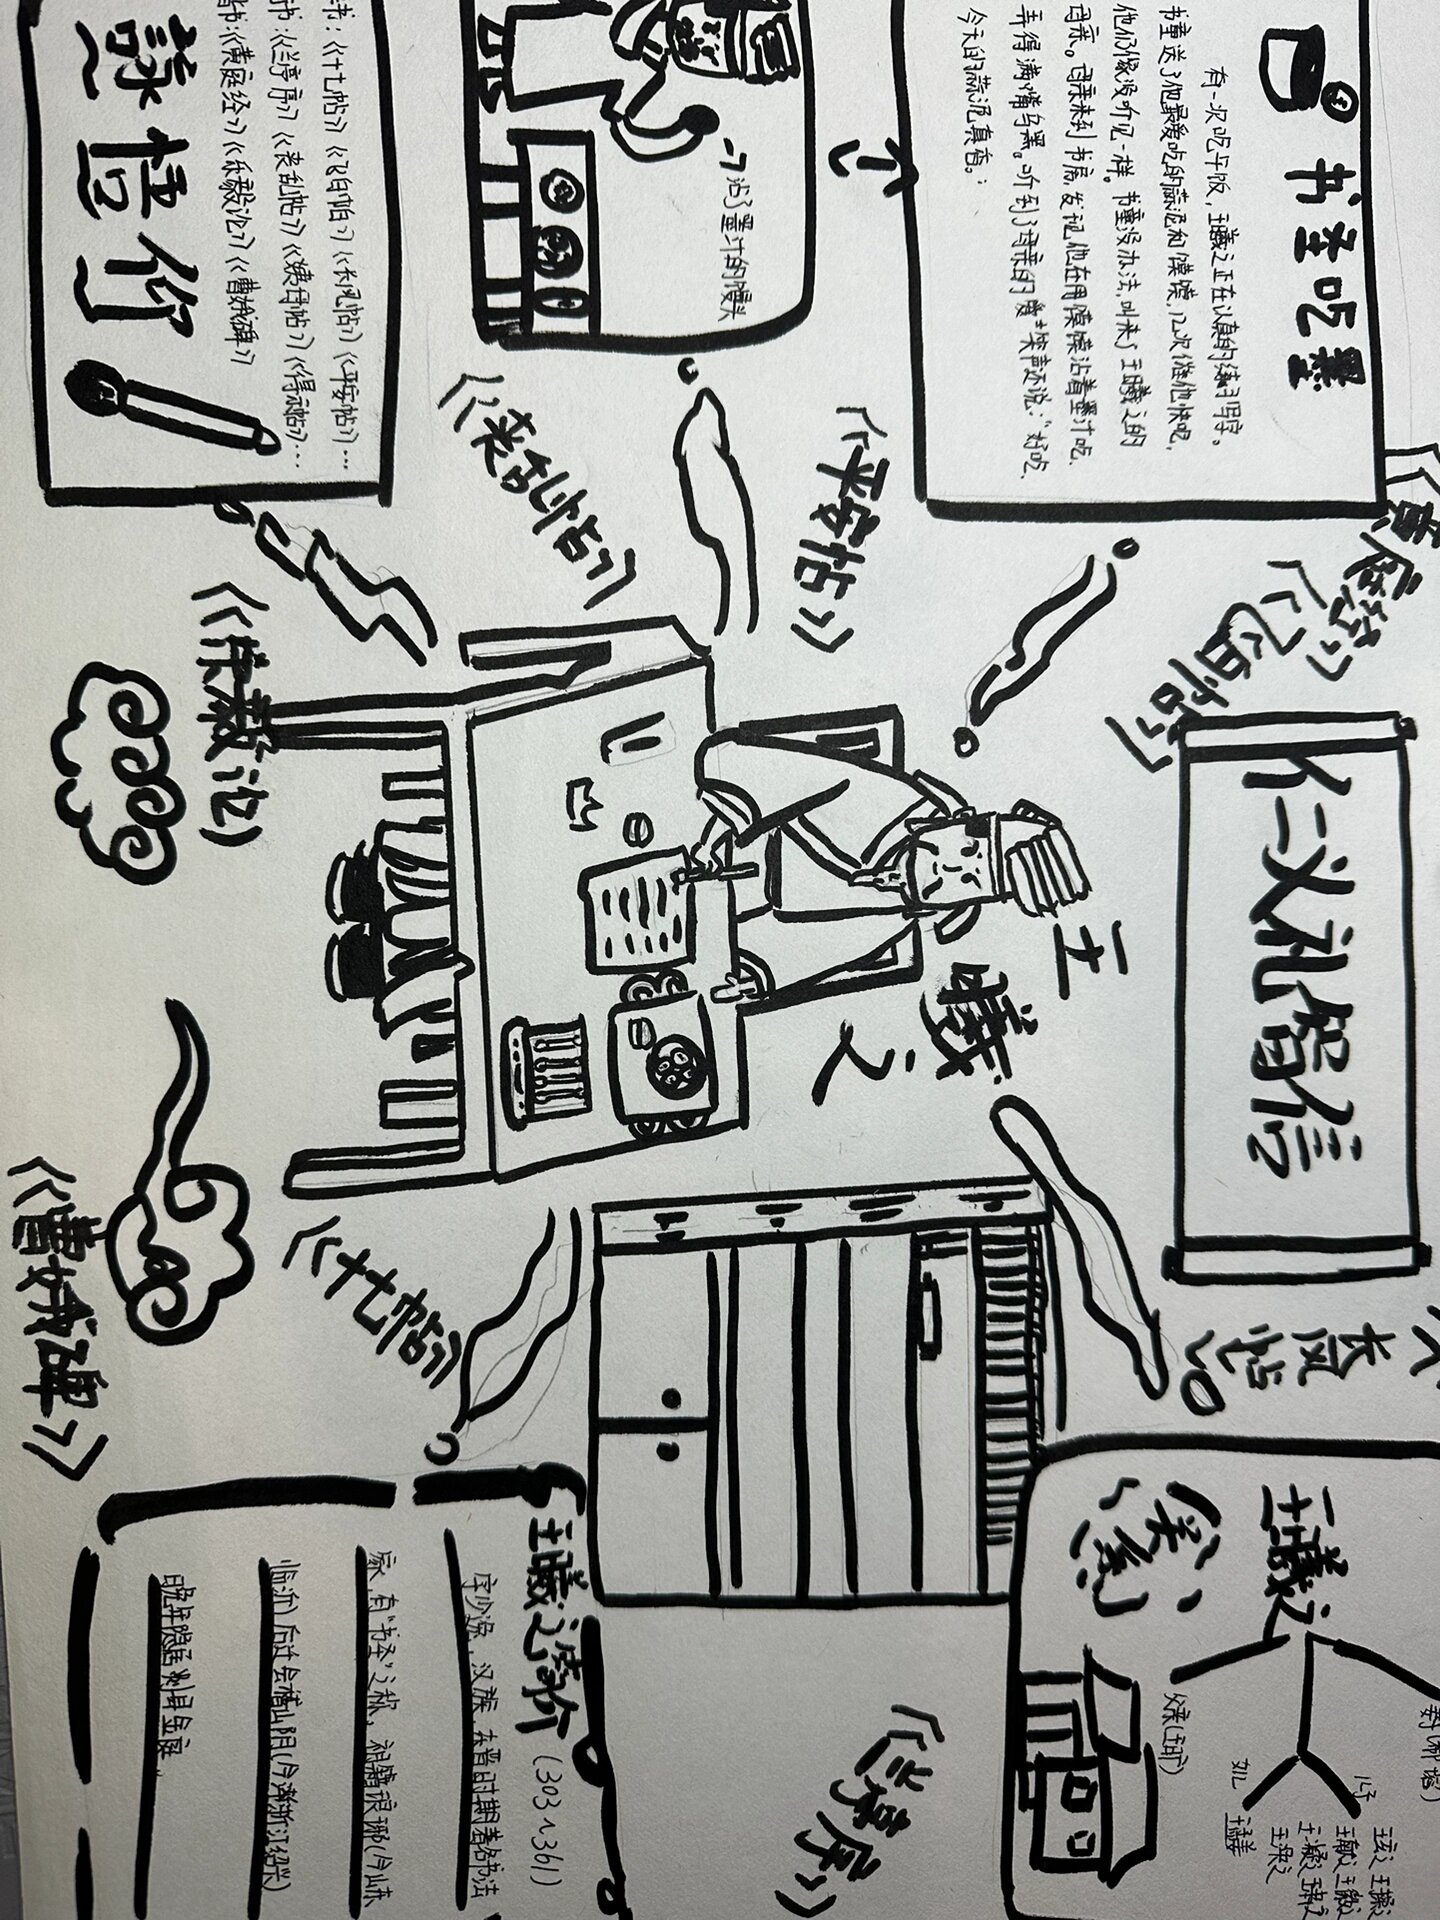 书圣吃墨
有一次吃午饭，王羲之正在认真的练习写字。
书童送了他最爱吃的蒜泥和馍馍，几次催他快吃，
他仍像没听见一样。书童没办法，叫来了王羲之的
母亲。母亲来到书房，发现他在用馍馍沾着墨汁吃，
弄得满嘴乌黑。听到了母亲的笑声还说："好吃，
今天的蒜泥真香。"
个
沾了墨汁的馒头
书：《十七帖》《飞白帖》《长风帖》《平安帖》…
书：《兰亭序》《丧乱帖》《姨母帖》《得示帖》…
书：《黄庭经》《乐毅论》《曹娥碑》
《丧乱帖》
《平安帖》
《黄庭经》
《飞白帖》
《乐毅论》
仁义礼智信
王羲之
《十七帖》
《曹娥碑》
长风帖
《兰亭序》
王羲之
关系
父亲(王旷)
儿子
王玄之 王操之
王献之 王徽之
王凝之 王肃之
王涣之
女儿
王孟姜
王羲之简介 (303~361)
字少逸，汉族，东晋时期著名书法
家，有"书圣"之称，祖籍琅琊(今山东
临沂)后迁会稽山阴(今浙江绍兴)
晚年隐居剡县金庭。